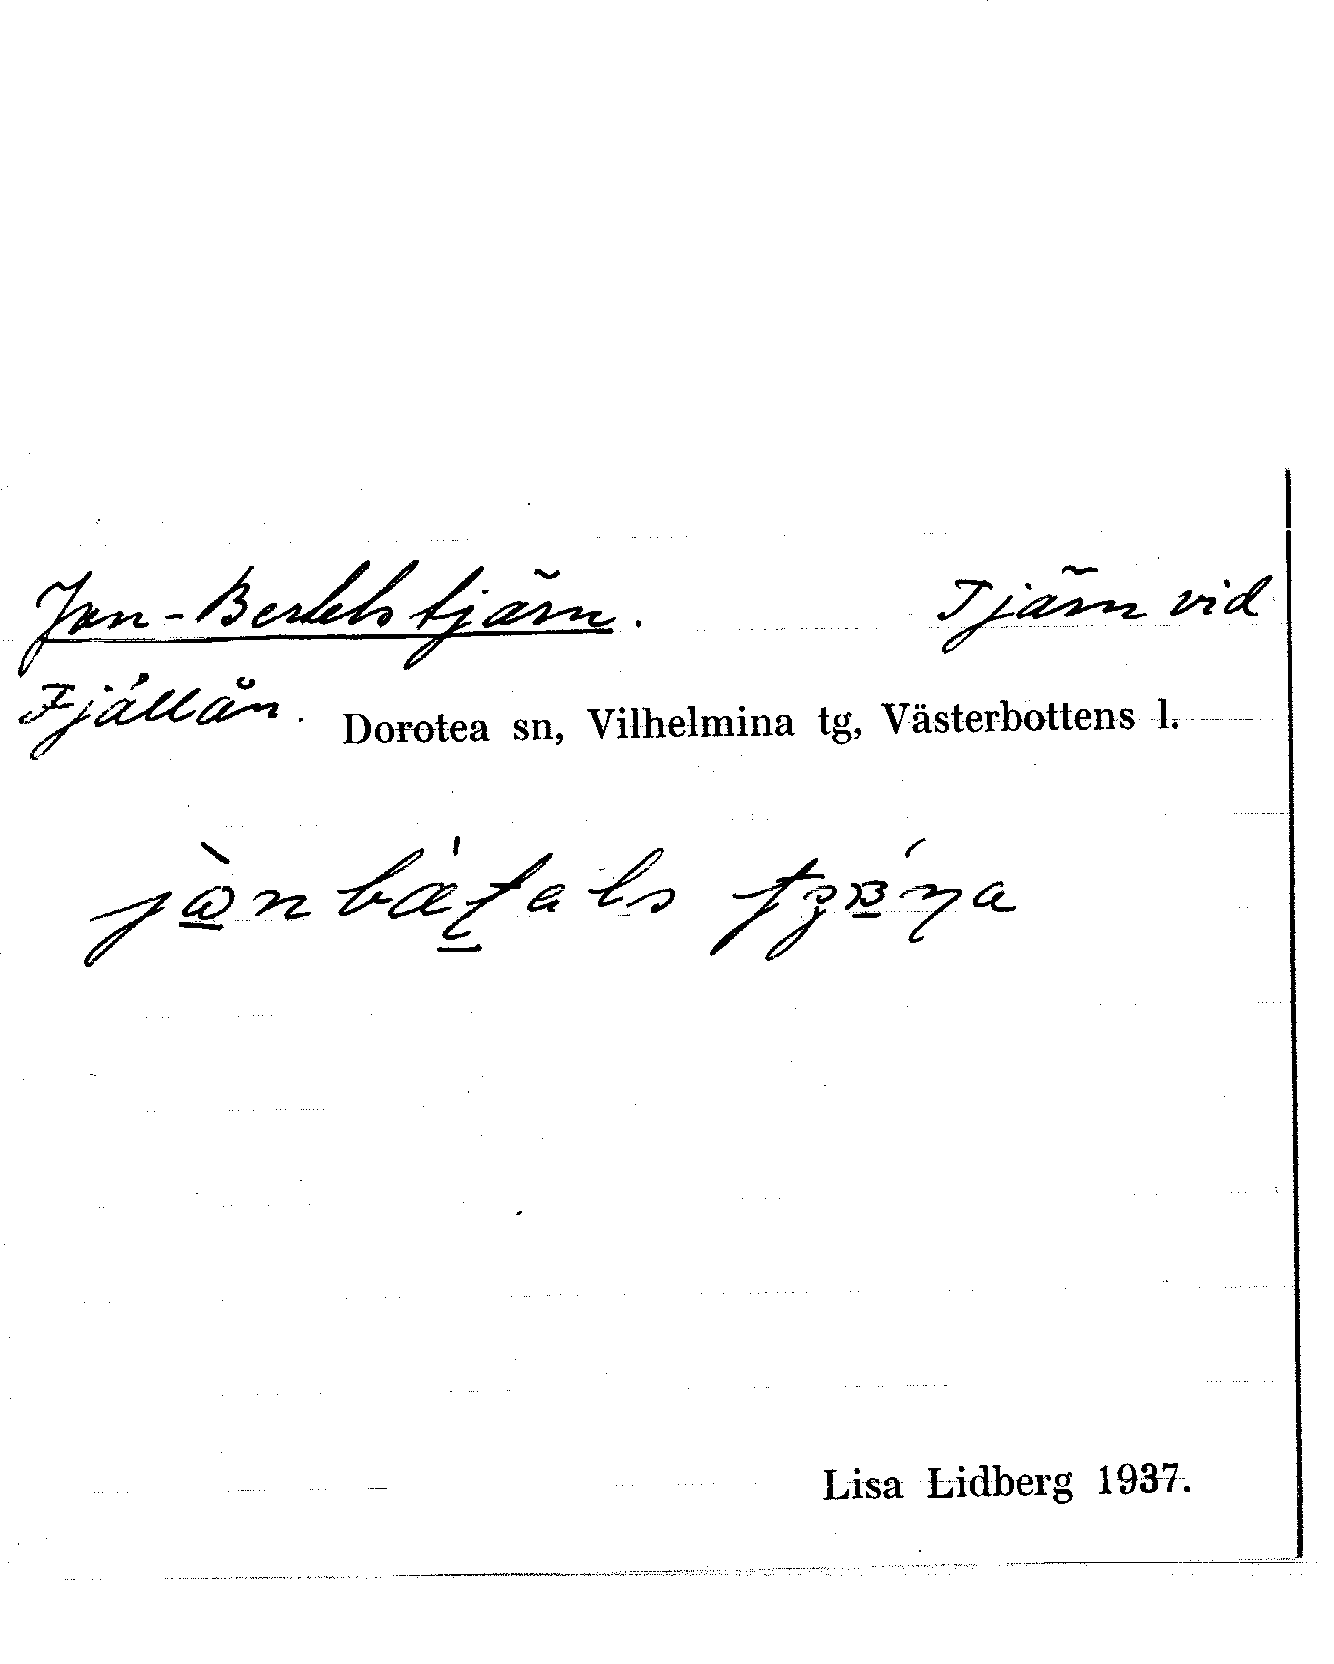 Jon-Bertelstjärn. Tjärn vid
Fjällån. Dorotea sn, Vilhelmina tg, Västerbottens l.
Lisa Lidberg 1937.